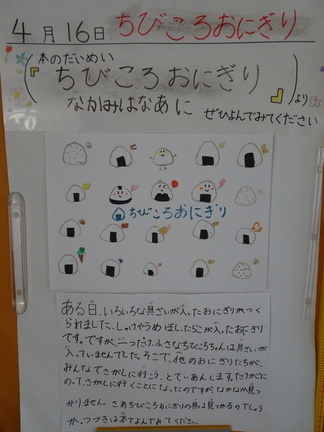 4月16日 ちびころおにぎり
本のだいめい
『ちびころおにぎり
なかみはなあに』より
ぜひよんでみてください
ちびころおにぎり
ある日、いろいろな具ざいが入ったおにぎりがつく
られました。しゃけやうめぼし、たらこが入ったおにぎり
です。ですが、一つだけ小さなちびころちゃんは具ざいが
入っていませんでした。そこで、他のおにぎりたちが、
みんなでさがしに行こう、とていあんします。
のでさがしに行くことになったのですが、なかなか見つ
かりません。さあちびころおにぎりの具は見つかるのでしょう
か。つづきは本でよんでみてください。